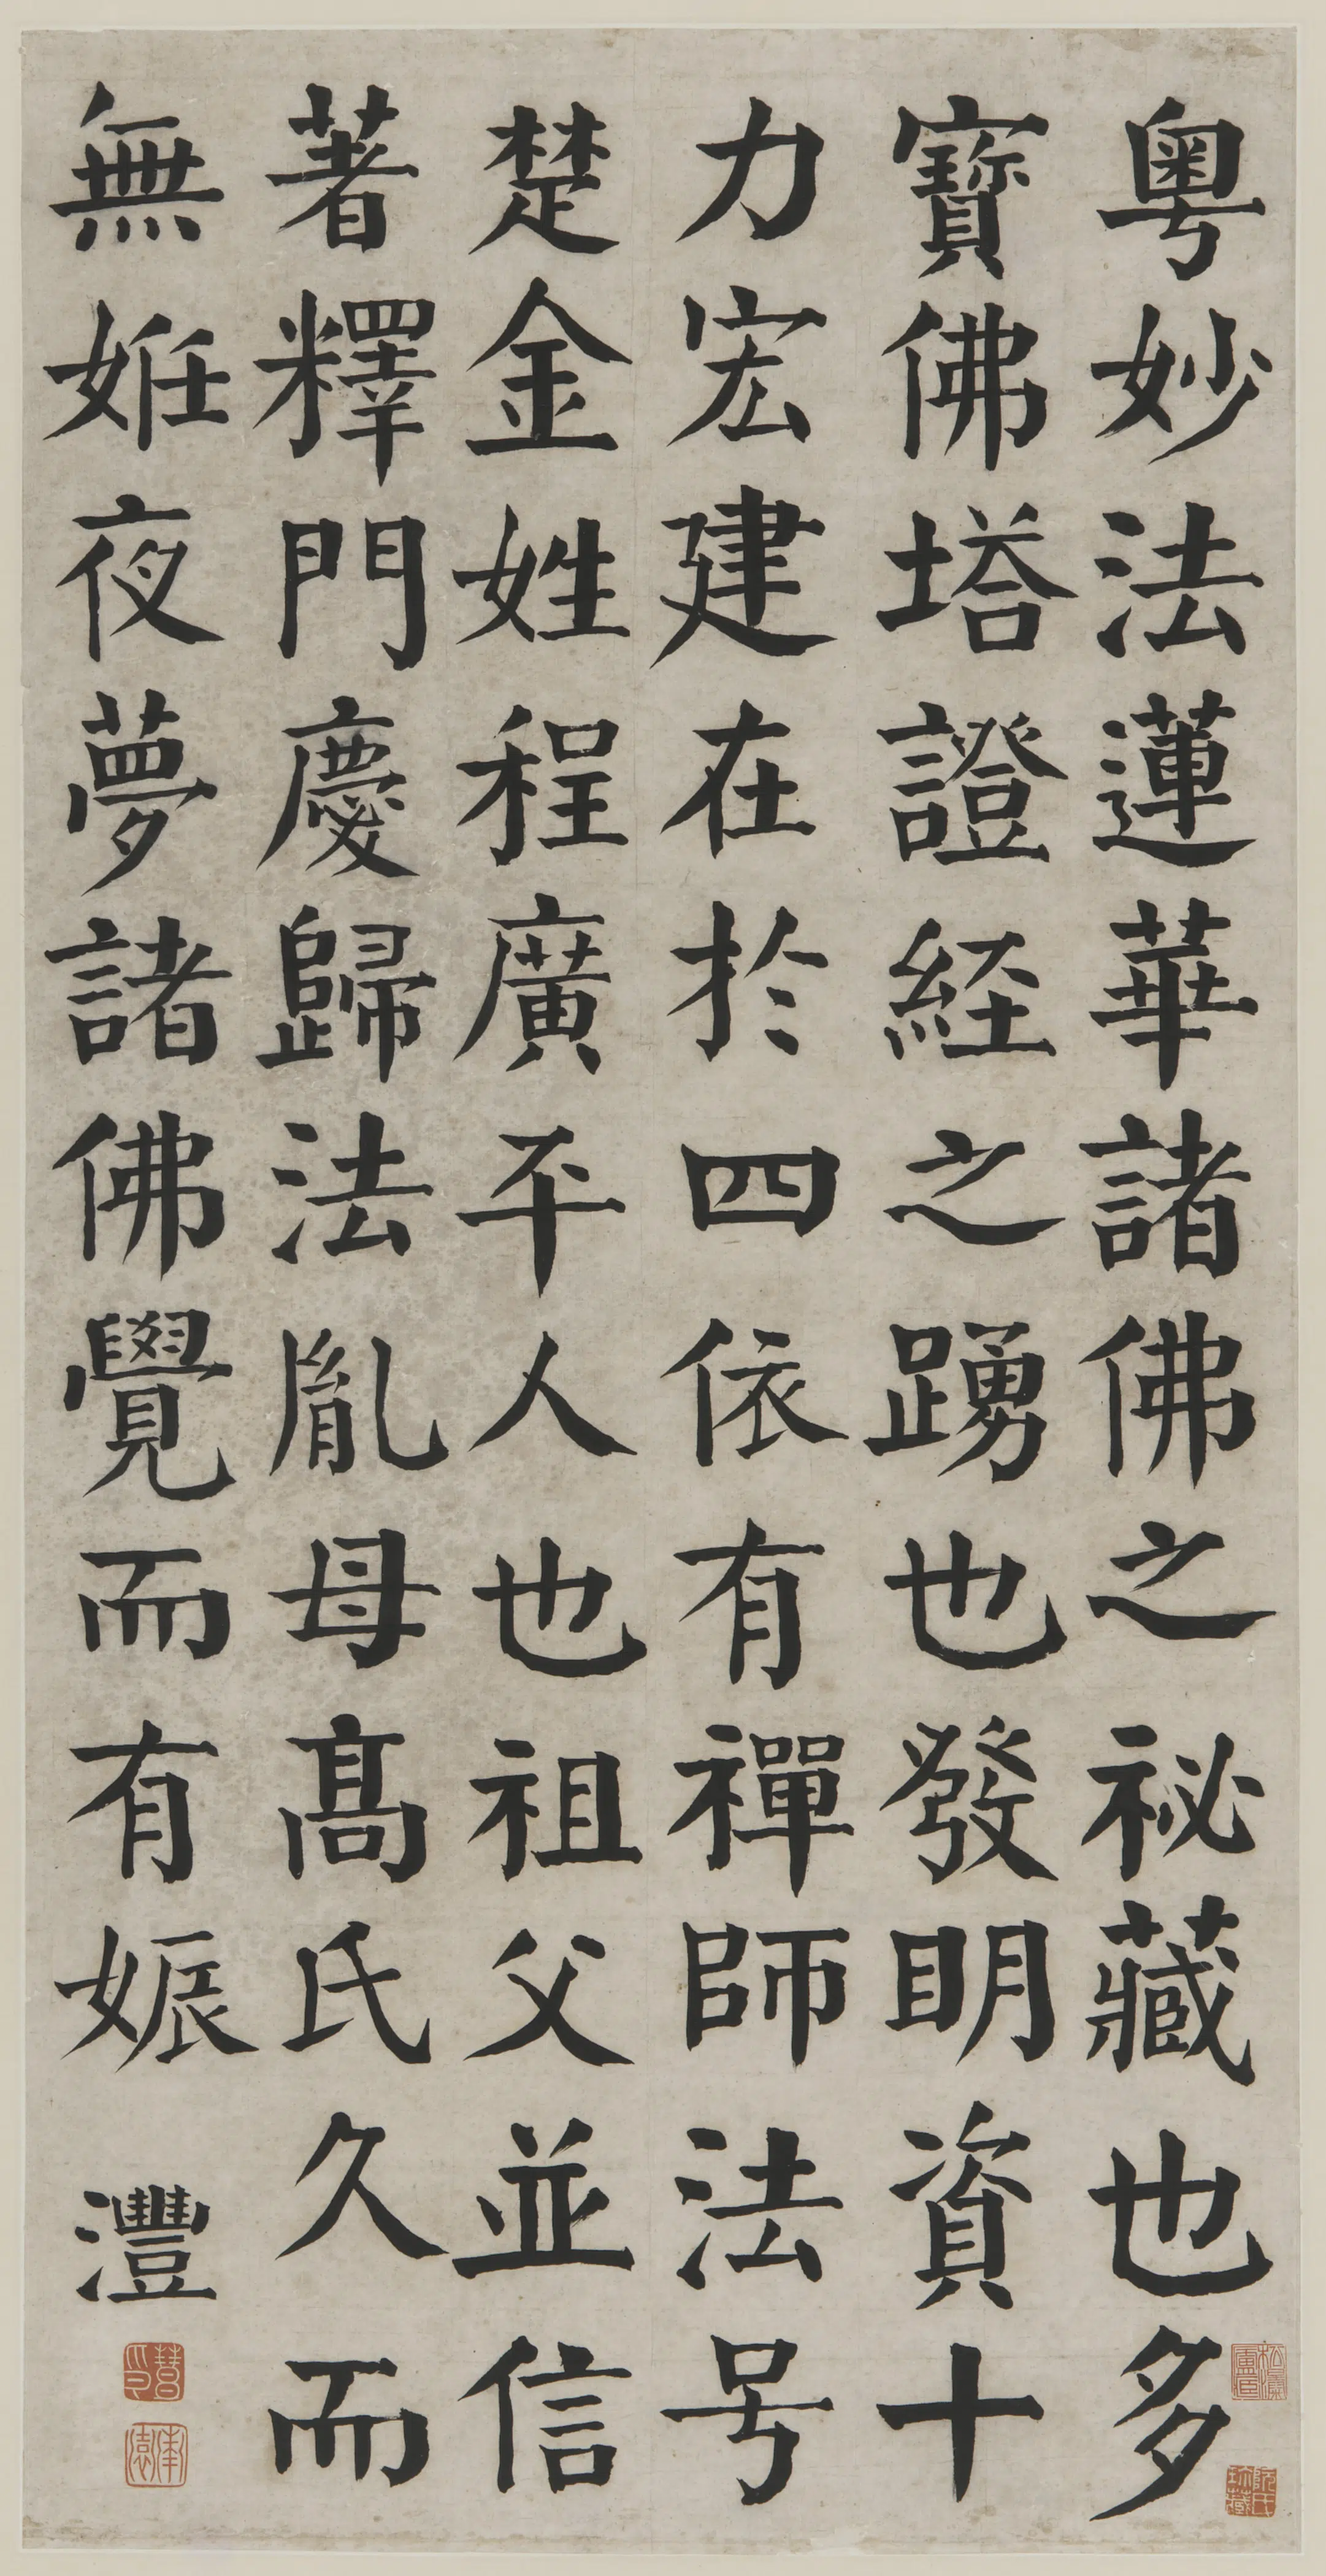 粵妙法蓮華諸佛之祕藏也多
寶佛塔證経之踴也發明資十
力宏建在於四依有禪師法号
楚金姓程廣平人也祖父並信
著釋門慶歸法胤母髙氏久而
無姙夜夢諸佛覺而有娠
灃